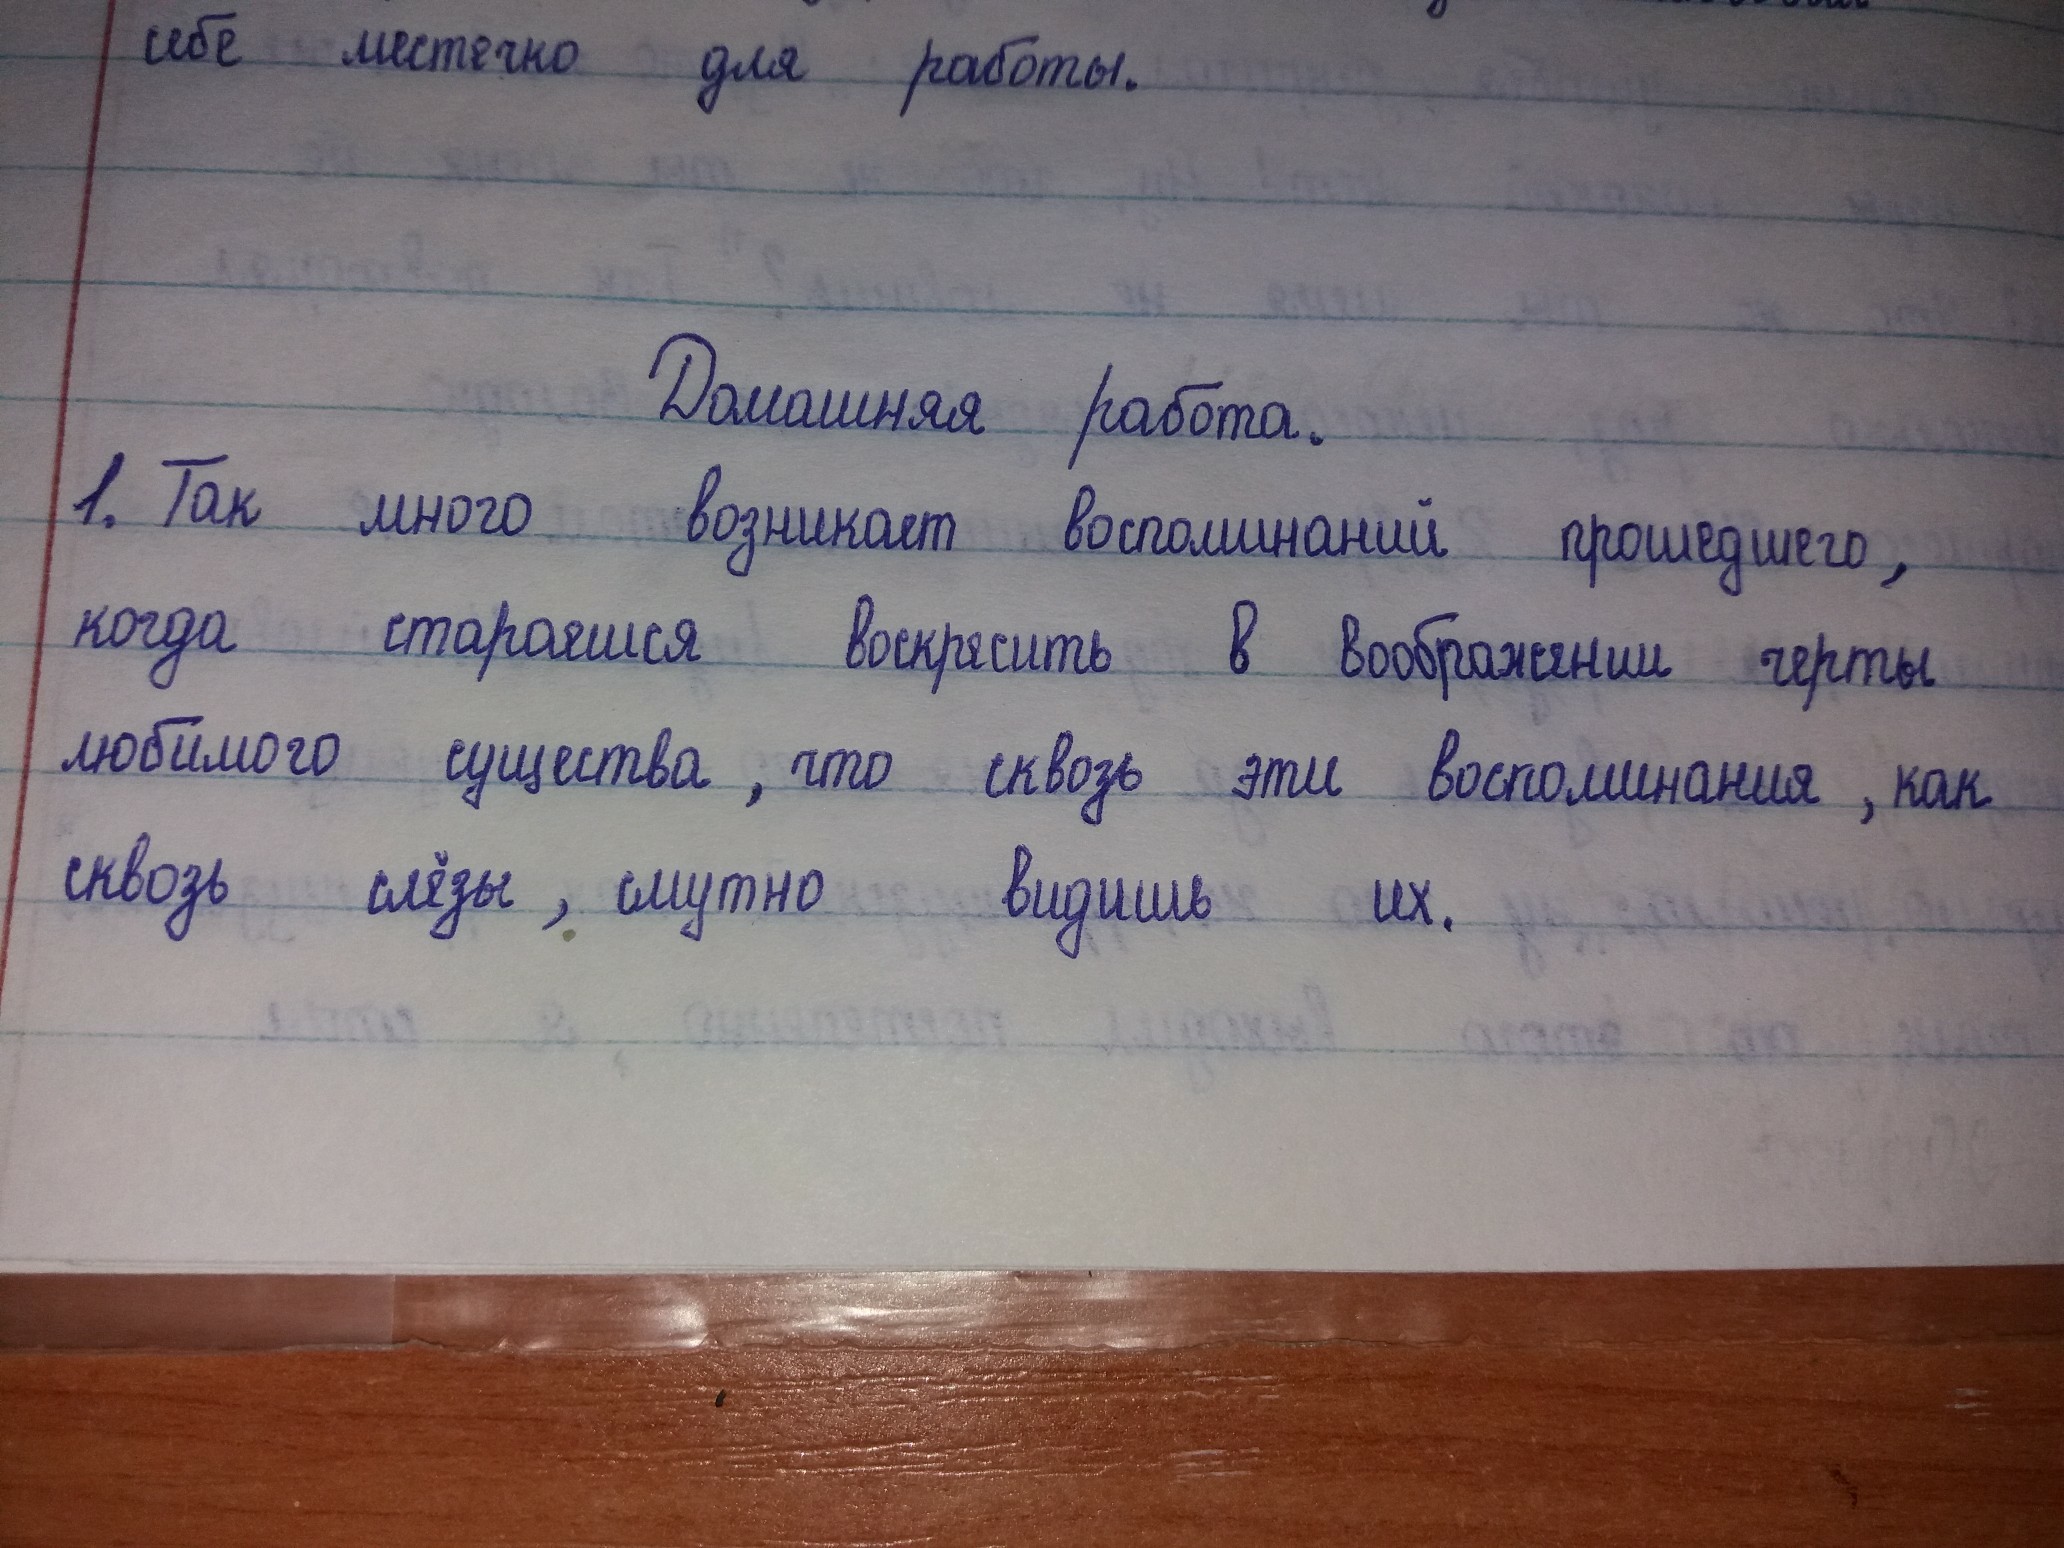 себе местечко для работы.
Домашняя работа.
1. Так много возникает воспоминаний прошедшего,
когда стараешся воскресить в воображении черты
любимого существа, что сквозь эти воспоминания, как
сквозь слёзы, смутно видишь их.